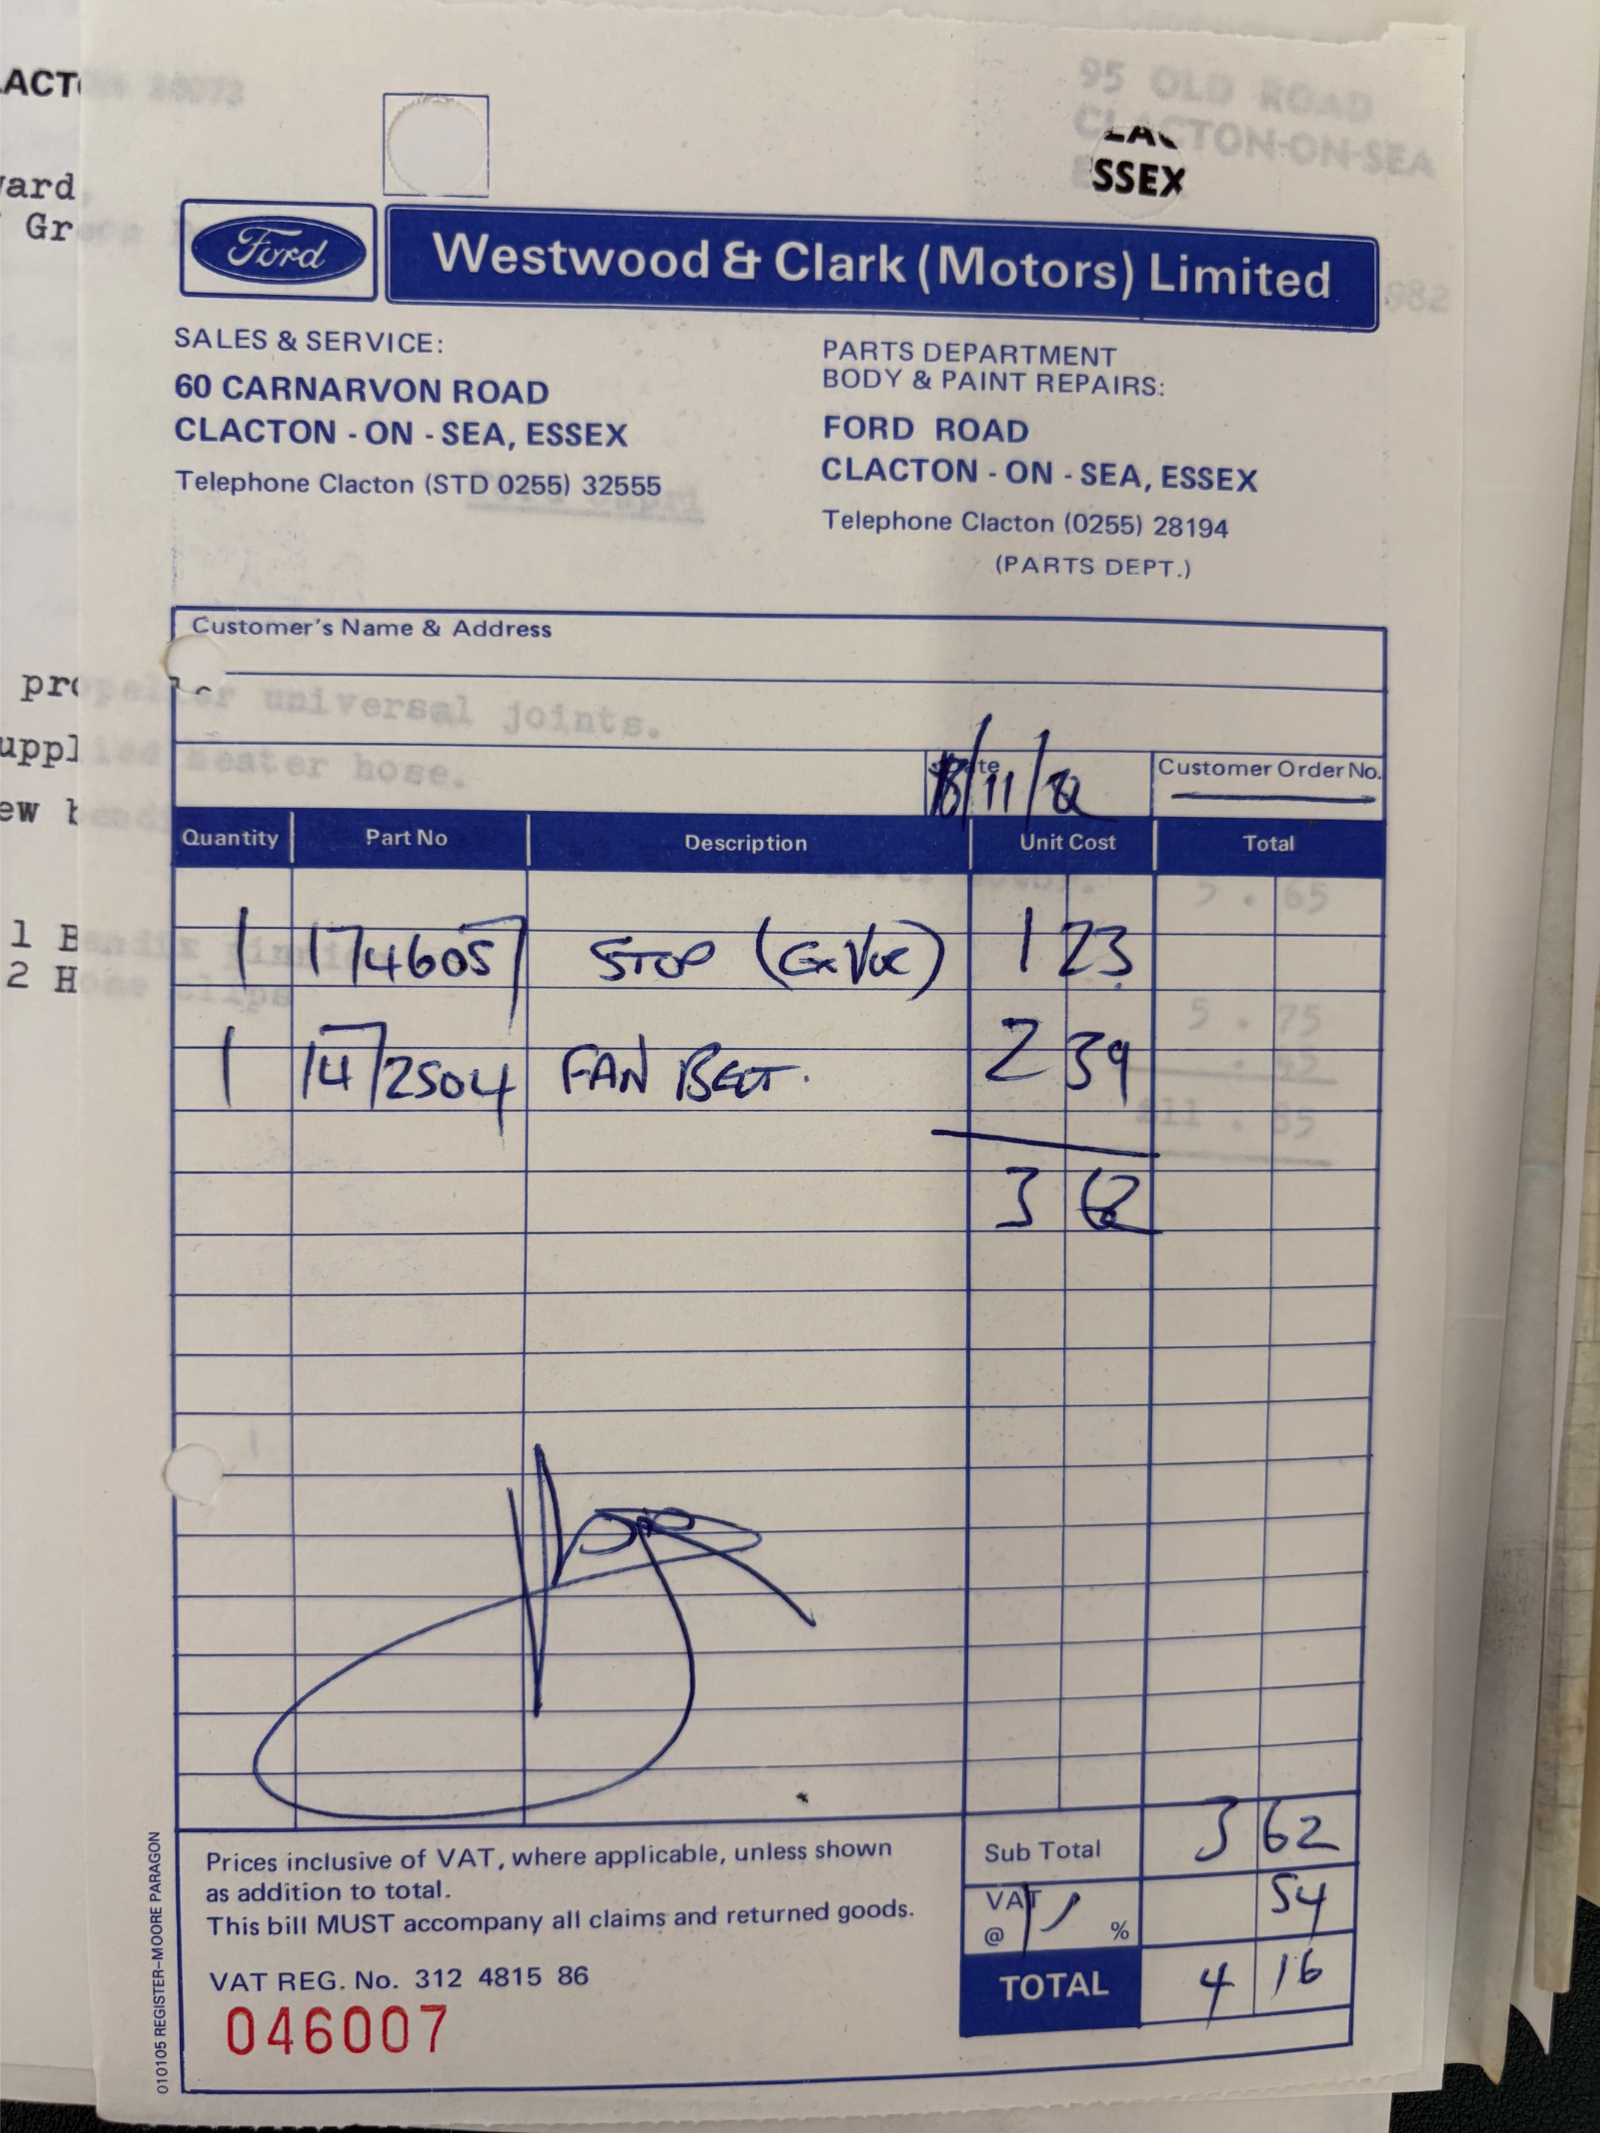 95 OLD ROAD
CLACTON-ON-SEA
SSEX
Ford
Westwood & Clark (Motors) Limited
SALES & SERVICE:
60 CARNARVON ROAD
CLACTON - ON - SEA, ESSEX
Telephone Clacton (STD 0255) 32555
PARTS DEPARTMENT
BODY & PAINT REPAIRS:
FORD ROAD
CLACTON - ON - SEA, ESSEX
Telephone Clacton (0255) 28194
(PARTS DEPT.)
Customer's Name & Address
propeller universal joints.
heater hose.
Date /11/82
Customer Order No.
Quantity Part No Description Unit Cost Total
5.65
1 1746057 STOP 1 23
5.75
1 1472504 FAN BELT. 2 39
.42
3 62
1 B
2 Hose clips
Prices inclusive of VAT, where applicable, unless shown
as addition to total.
This bill MUST accompany all claims and returned goods.
VAT REG. No. 312 4815 86
046007
Sub Total 3 62
VAT @ % 54
TOTAL 4 16
010105 REGISTER-MOORE PARAGON